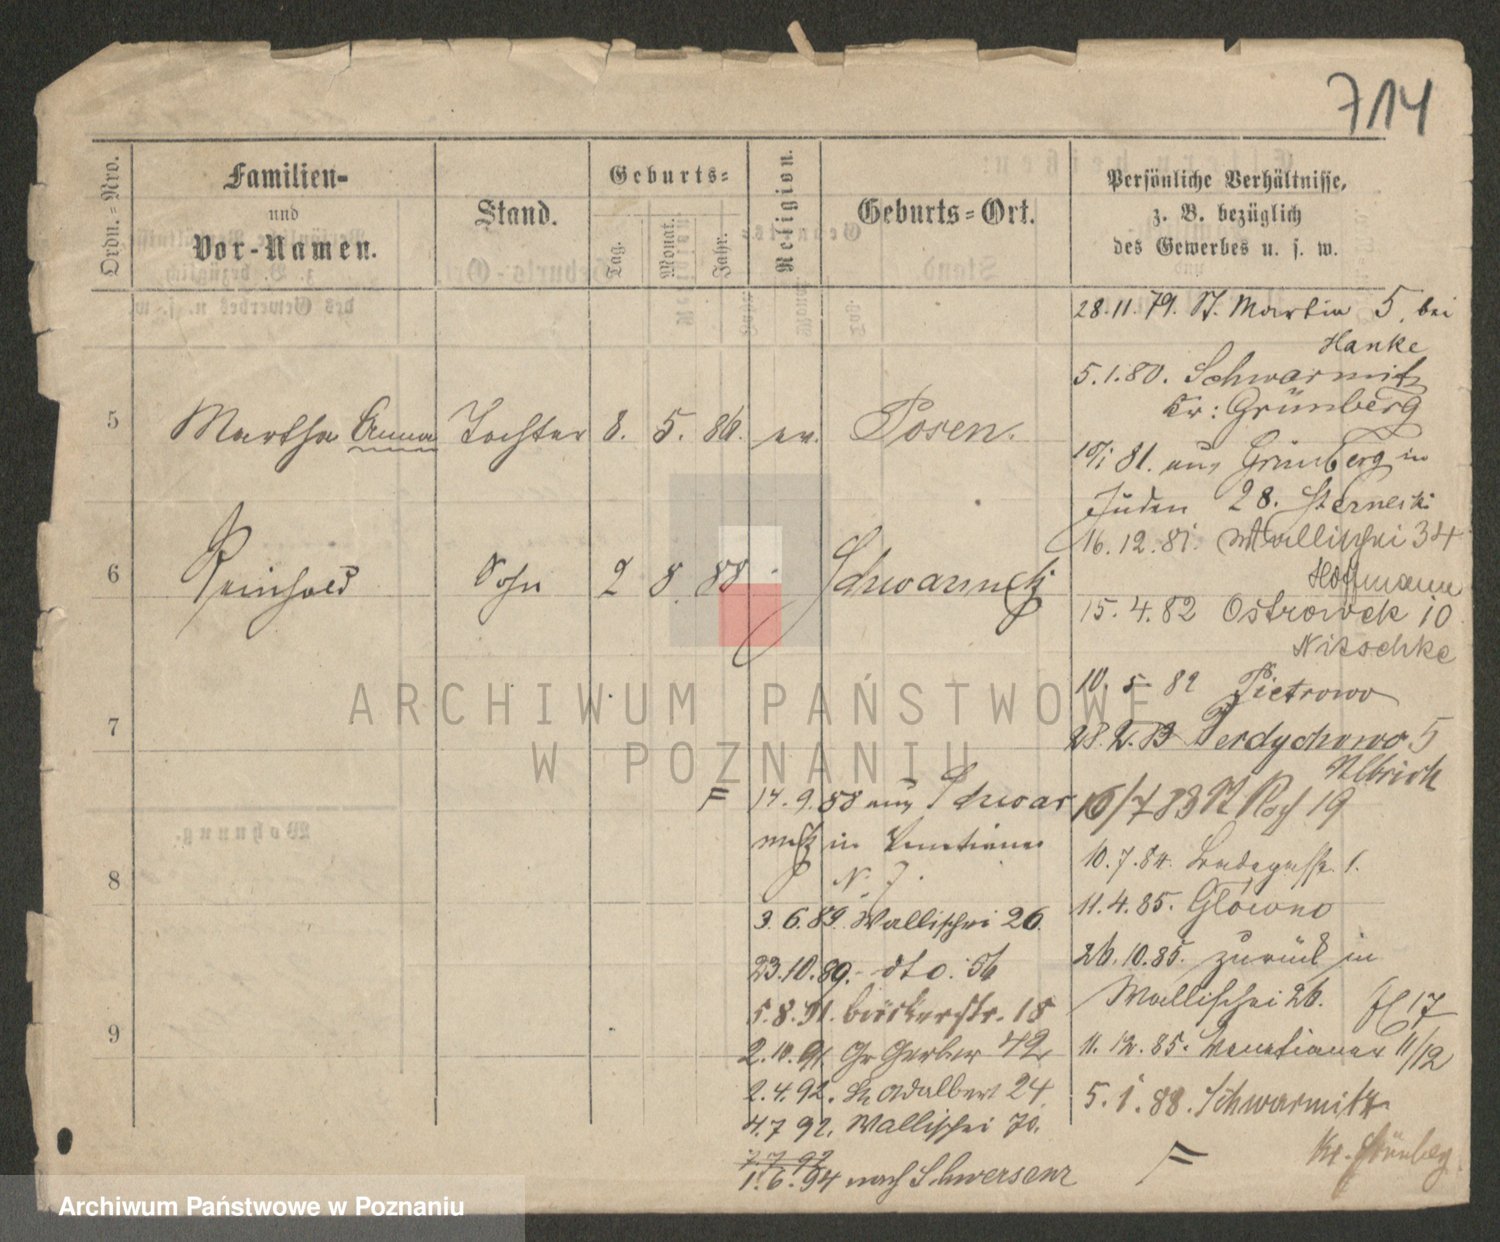 714
Ordn.=Nro.
Familien-
und
Vor-Namen.
Stand.
Geburts=
Tag.
Monat.
Jahr.
Religion.
Geburts=Ort.
Persönliche Verhältnisse,
z. B. bezüglich
des Gewerbes u. s. w.
5 Martha Anna Tochter 8. 5. 86. ev. Posen.
6 Reinhold Sohn 2 8. 88 Schwarmitz
7
8
9
28.11.79. St. Martin 5, bei
Hanke
5.1.80. Schwarmitz
Kr: Grünberg
81. aus Grünberg in
Juden 28.
16.12.81. Wallischei 34
Hoffmann
15.4.82 Ostrowek 10
Nitschke
10. 5 82 Pietrowo
Berdychowo 5
Ulbrich
16/7 83 St Roch 19
10.7.84. 1.
11.4.85. Glowno
26.10.85. zurück in
Wallischei 26. 17
11.12.85. Venetianer 11/12
5.1.88. Schwarmitz
Kr. Grünberg
17.9.88 aus Schwar
mitz in Venetianer
N. 7.
3.6.89. Wallischei 26.
23.10.89. dto. 56
5.8.91. Bäckerstr. 18
2.10.91 Gr Gerber 42,
2.4.92. St Adalbert 24.
4.7 92. Wallischei 70.
7.7.92
1.6.94 nach Schwersenz
ARCHIWUM PAŃSTWOWE
W POZNANIU
Archiwum Państwowe w Poznaniu